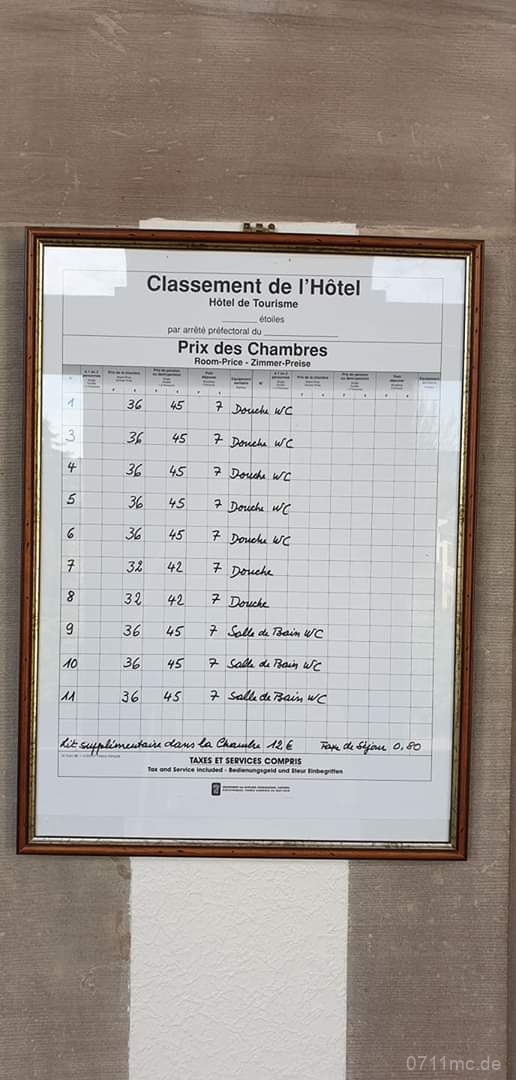 Classement de l'Hôtel
Hôtel de Tourisme
________ étoiles
par arrêté préfectoral du ________________
Prix des Chambres
Room-Price - Zimmer-Preise
1 36 45 7 Douche WC
3 36 45 7 Douche WC
4 36 45 7 Douche WC
5 36 45 7 Douche WC
6 36 45 7 Douche WC
7 32 42 7 Douche
8 32 42 7 Douche
9 36 45 7 Salle de Bain WC
10 36 45 7 Salle de Bain WC
11 36 45 7 Salle de Bain WC
Lit supplimentaire dans la Chambre 12,€ Taxe de Séjour 0,80
TAXES ET SERVICES COMPRIS
Tax and Service included - Bedienungsgeld und Steur Einbegritten
0711mc.de